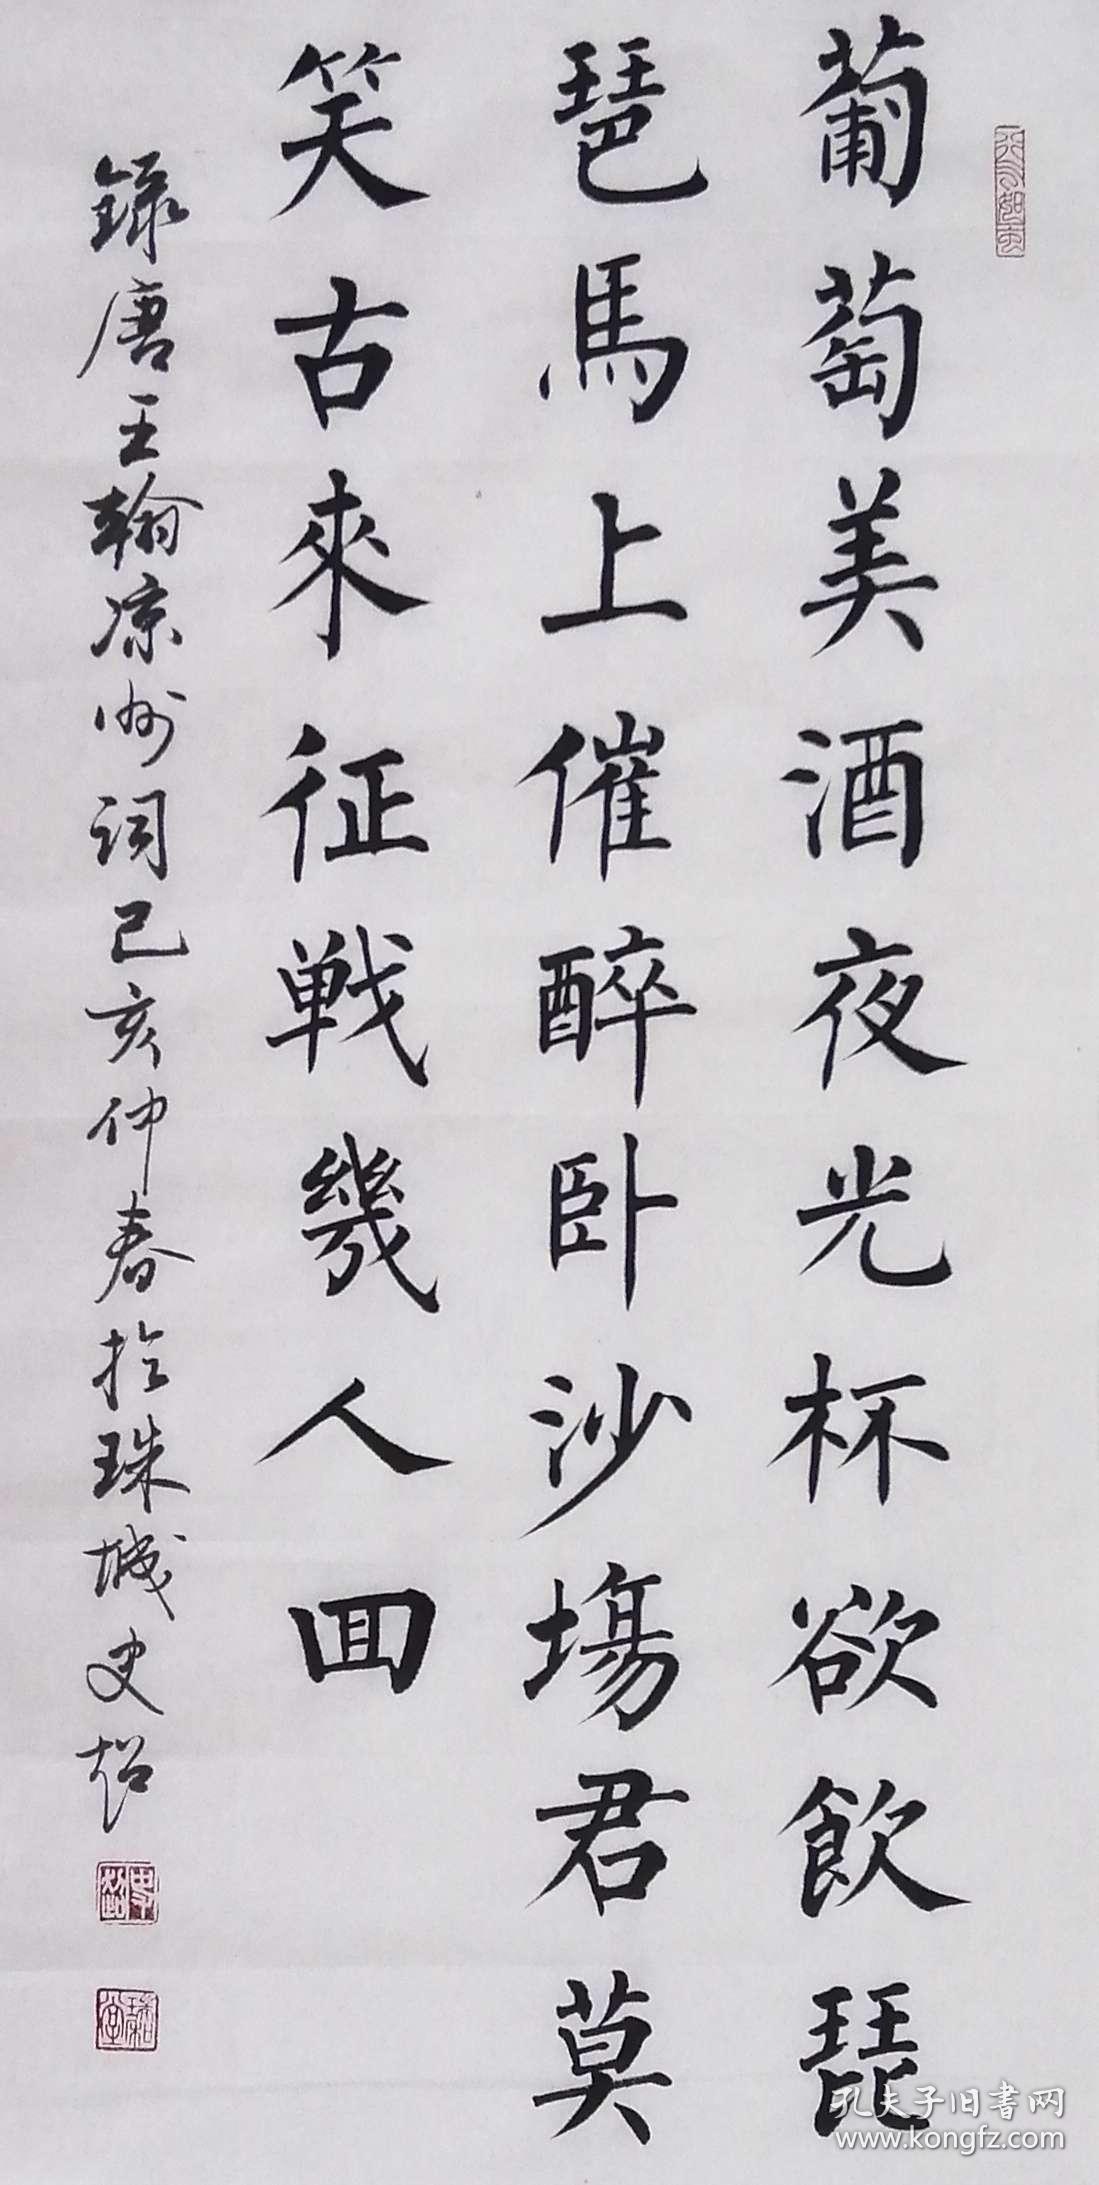 葡萄美酒夜光杯欲飲琵
琶馬上催醉卧沙塲君莫
笑古來征戦幾人回
録唐王翰凉州词己亥仲春於珠城史超
孔夫子旧書网
www.kongfz.com